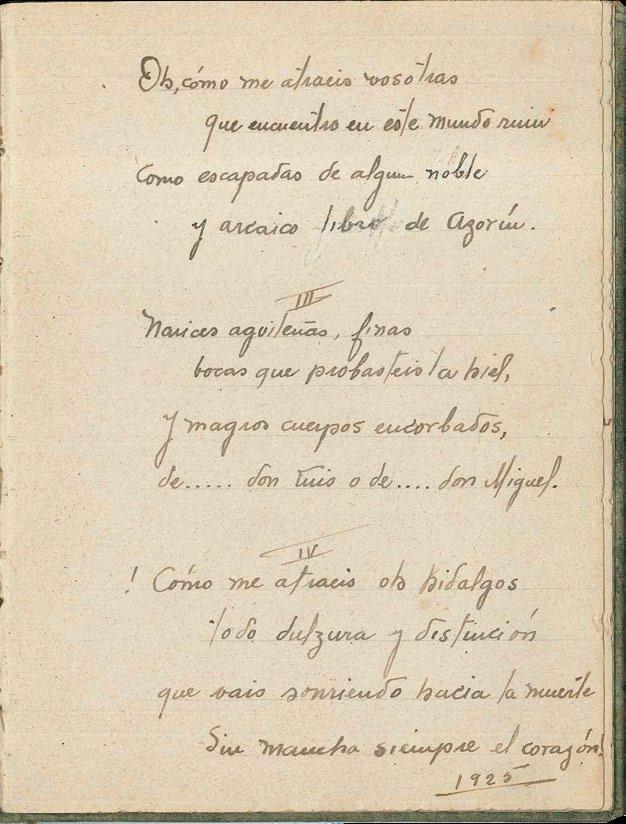 Oh, cómo me atraeis vosotras
que encuentro en este mundo ruin
como escapadas de algun noble
y arcaico libro de Azorín.
III
Narices aguileñas, finas
bocas que probasteis la hiel,
y magros cuerpos encorbados,
de..... don Luis o de.... don Miguel.
IV
! Cómo me atraeis oh hidalgos
todo dulzura y distinción
que vais sonriendo hacia la muerte
Sin mancha siempre el corazón!
1925